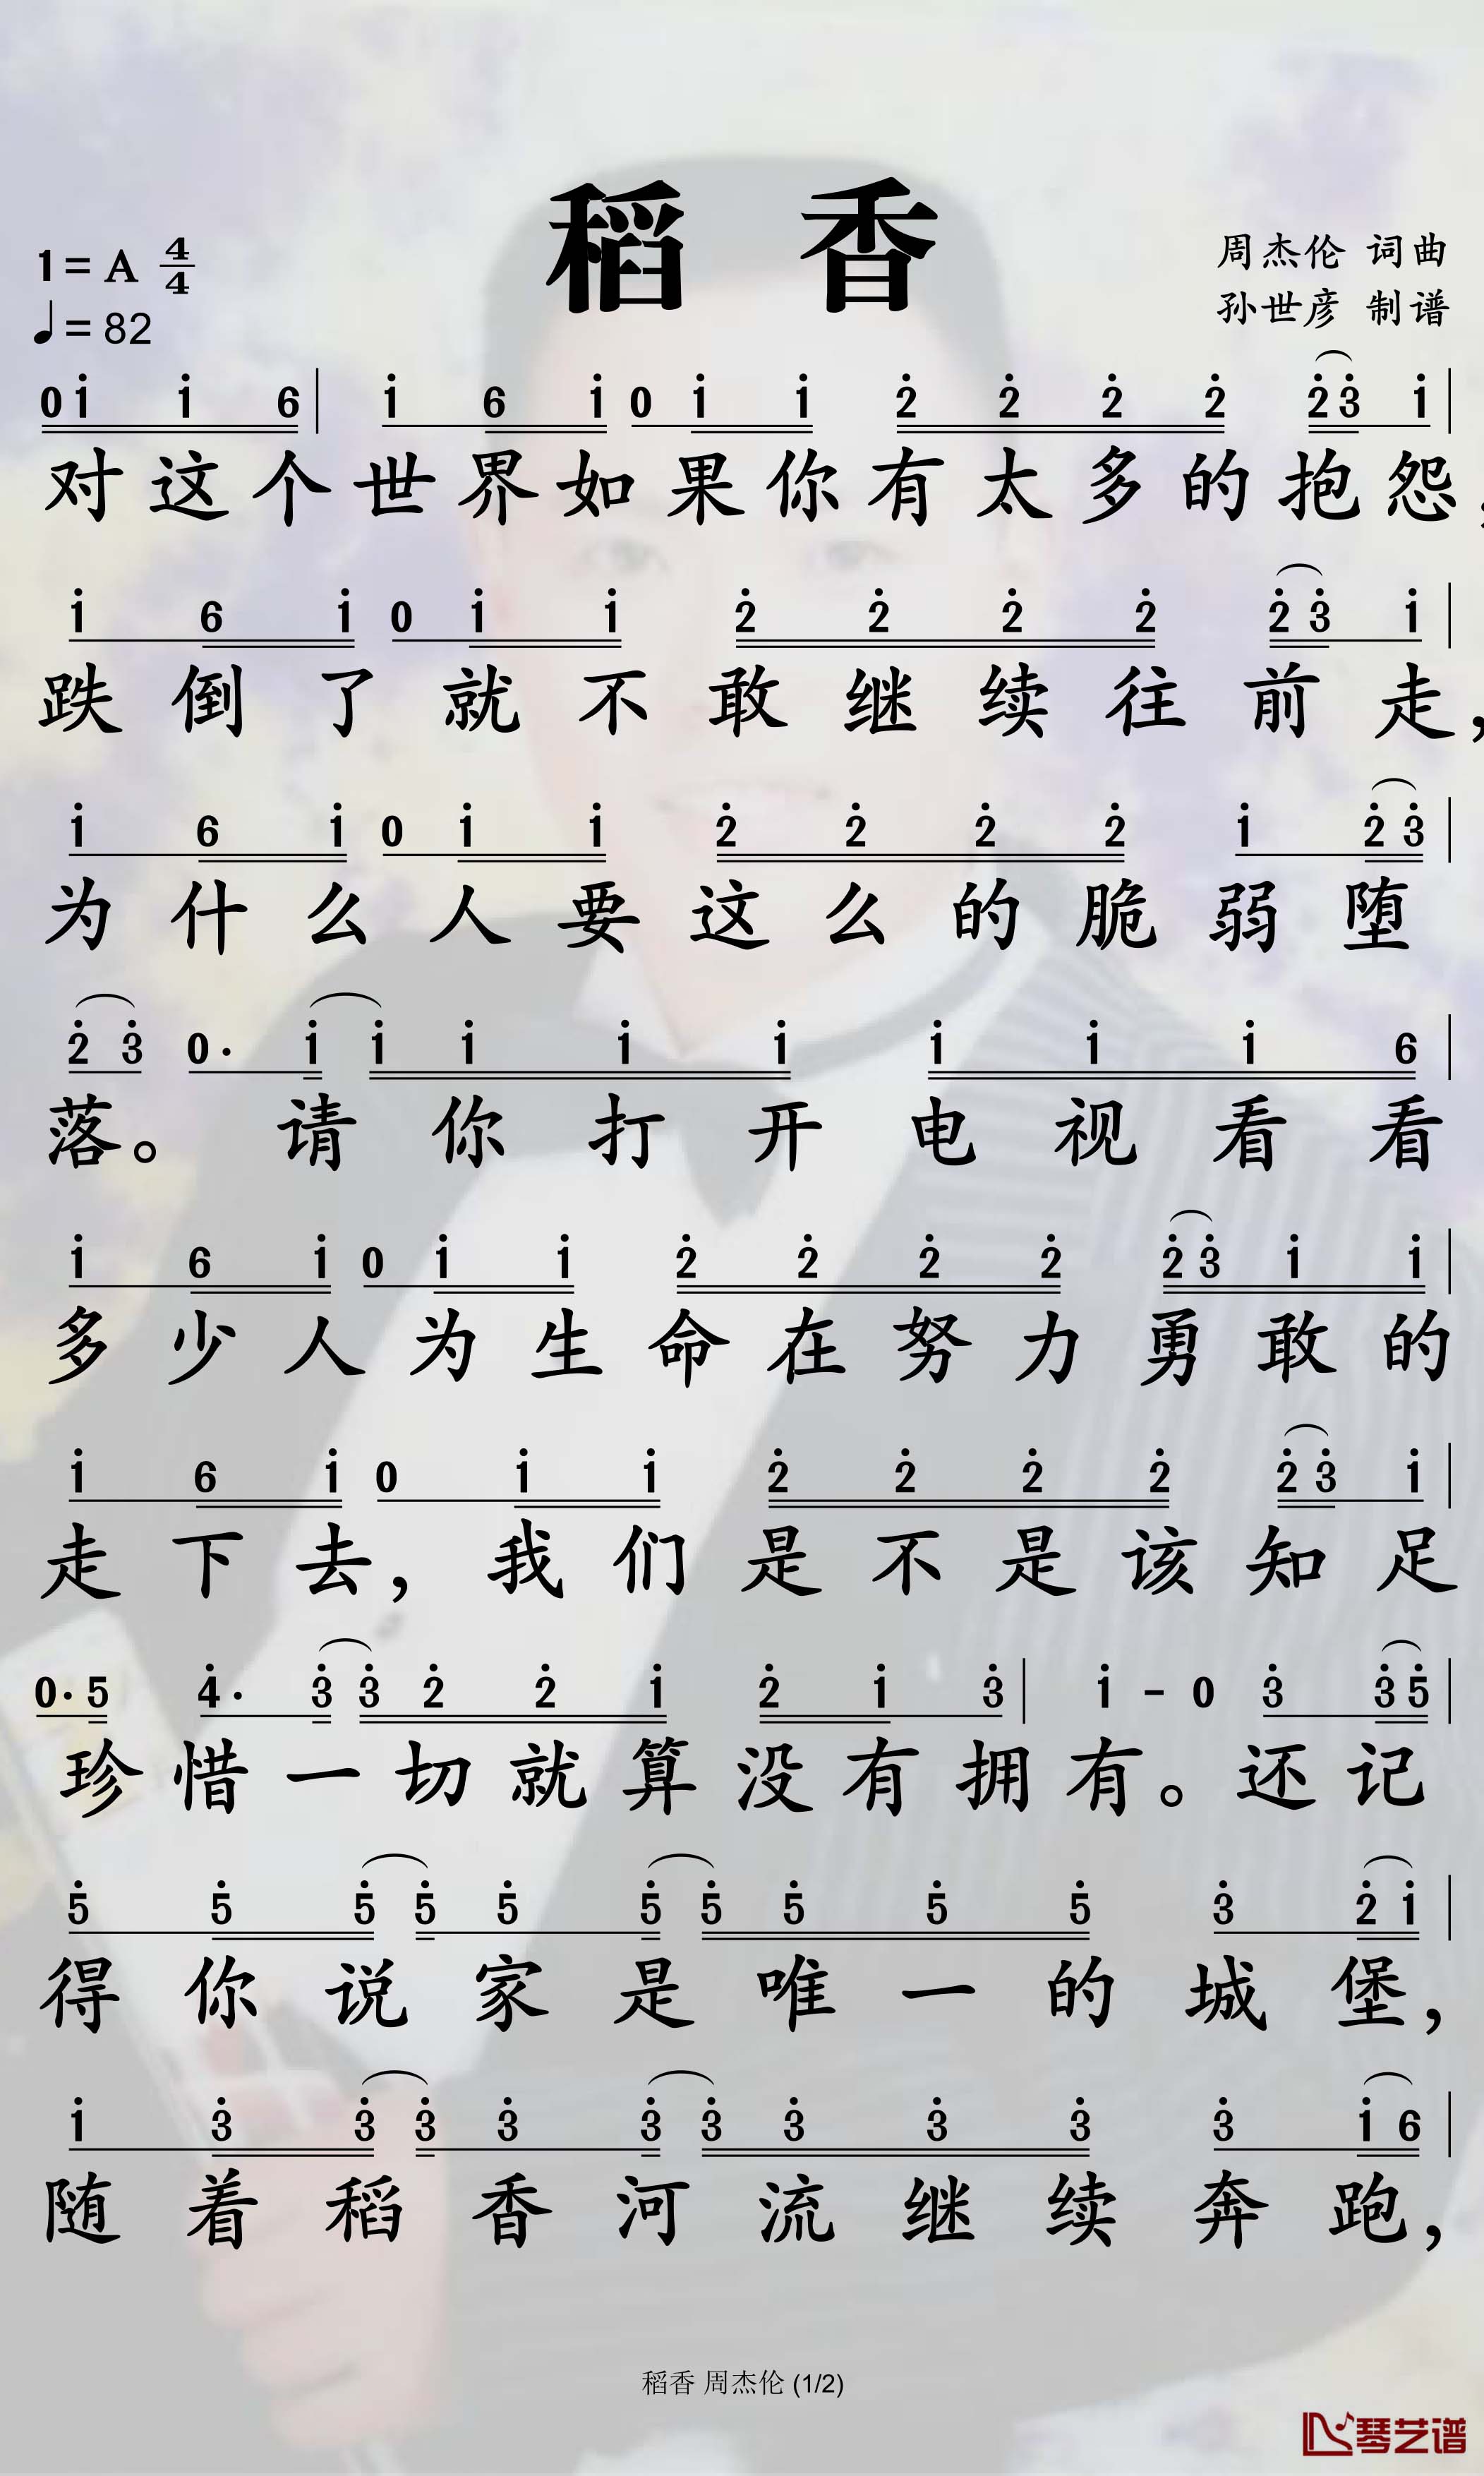 稻 香
1=A 4/4
♩=82
周杰伦 词曲
孙世彦 制谱
0 1̇ 1̇ 6 | 1̇ 6 1̇ 0 1̇ 1̇ 2̇ 2̇ 2̇ 2̇ 2̇ 3̇ 1̇ |
对这个世界如果你有太多的抱怨，
1̇ 6 1̇ 0 1̇ 1̇ 2̇ 2̇ 2̇ 2̇ 2̇ 3̇ 1̇ |
跌倒了就不敢继续往前走，
1̇ 6 1̇ 0 1̇ 1̇ 2̇ 2̇ 2̇ 2̇ 1̇ 2̇ 3̇ |
为什么人要这么的脆弱堕
2̇ 3̇ 0· 1̇ 1̇ 1̇ 1̇ 1̇ 1̇ 1̇ 1̇ 6 |
落。请你打开电视看看
1̇ 6 1̇ 0 1̇ 1̇ 2̇ 2̇ 2̇ 2̇ 2̇ 3̇ 1̇ 1̇ |
多少人为生命在努力勇敢的
1̇ 6 1̇ 0 1̇ 1̇ 2̇ 2̇ 2̇ 2̇ 2̇ 3̇ 1̇ |
走下去，我们是不是该知足
0· 5 4̇· 3̇ 3̇ 2̇ 2̇ 1̇ 2̇ 1̇ 3̇ | 1̇ - 0 3̇ 3̇ 5̇ |
珍惜一切就算没有拥有。还记
5̇ 5̇ 5̇ 5̇ 5̇ 5̇ 5̇ 5̇ 5̇ 5̇ 3̇ 2̇ 1̇ |
得你说家是唯一的城堡，
1̇ 3̇ 3̇ 3̇ 3̇ 3̇ 3̇ 3̇ 3̇ 3̇ 3̇ 1̇ 6 |
随着稻香河流继续奔跑，
稻香 周杰伦 (1/2)
琴艺谱